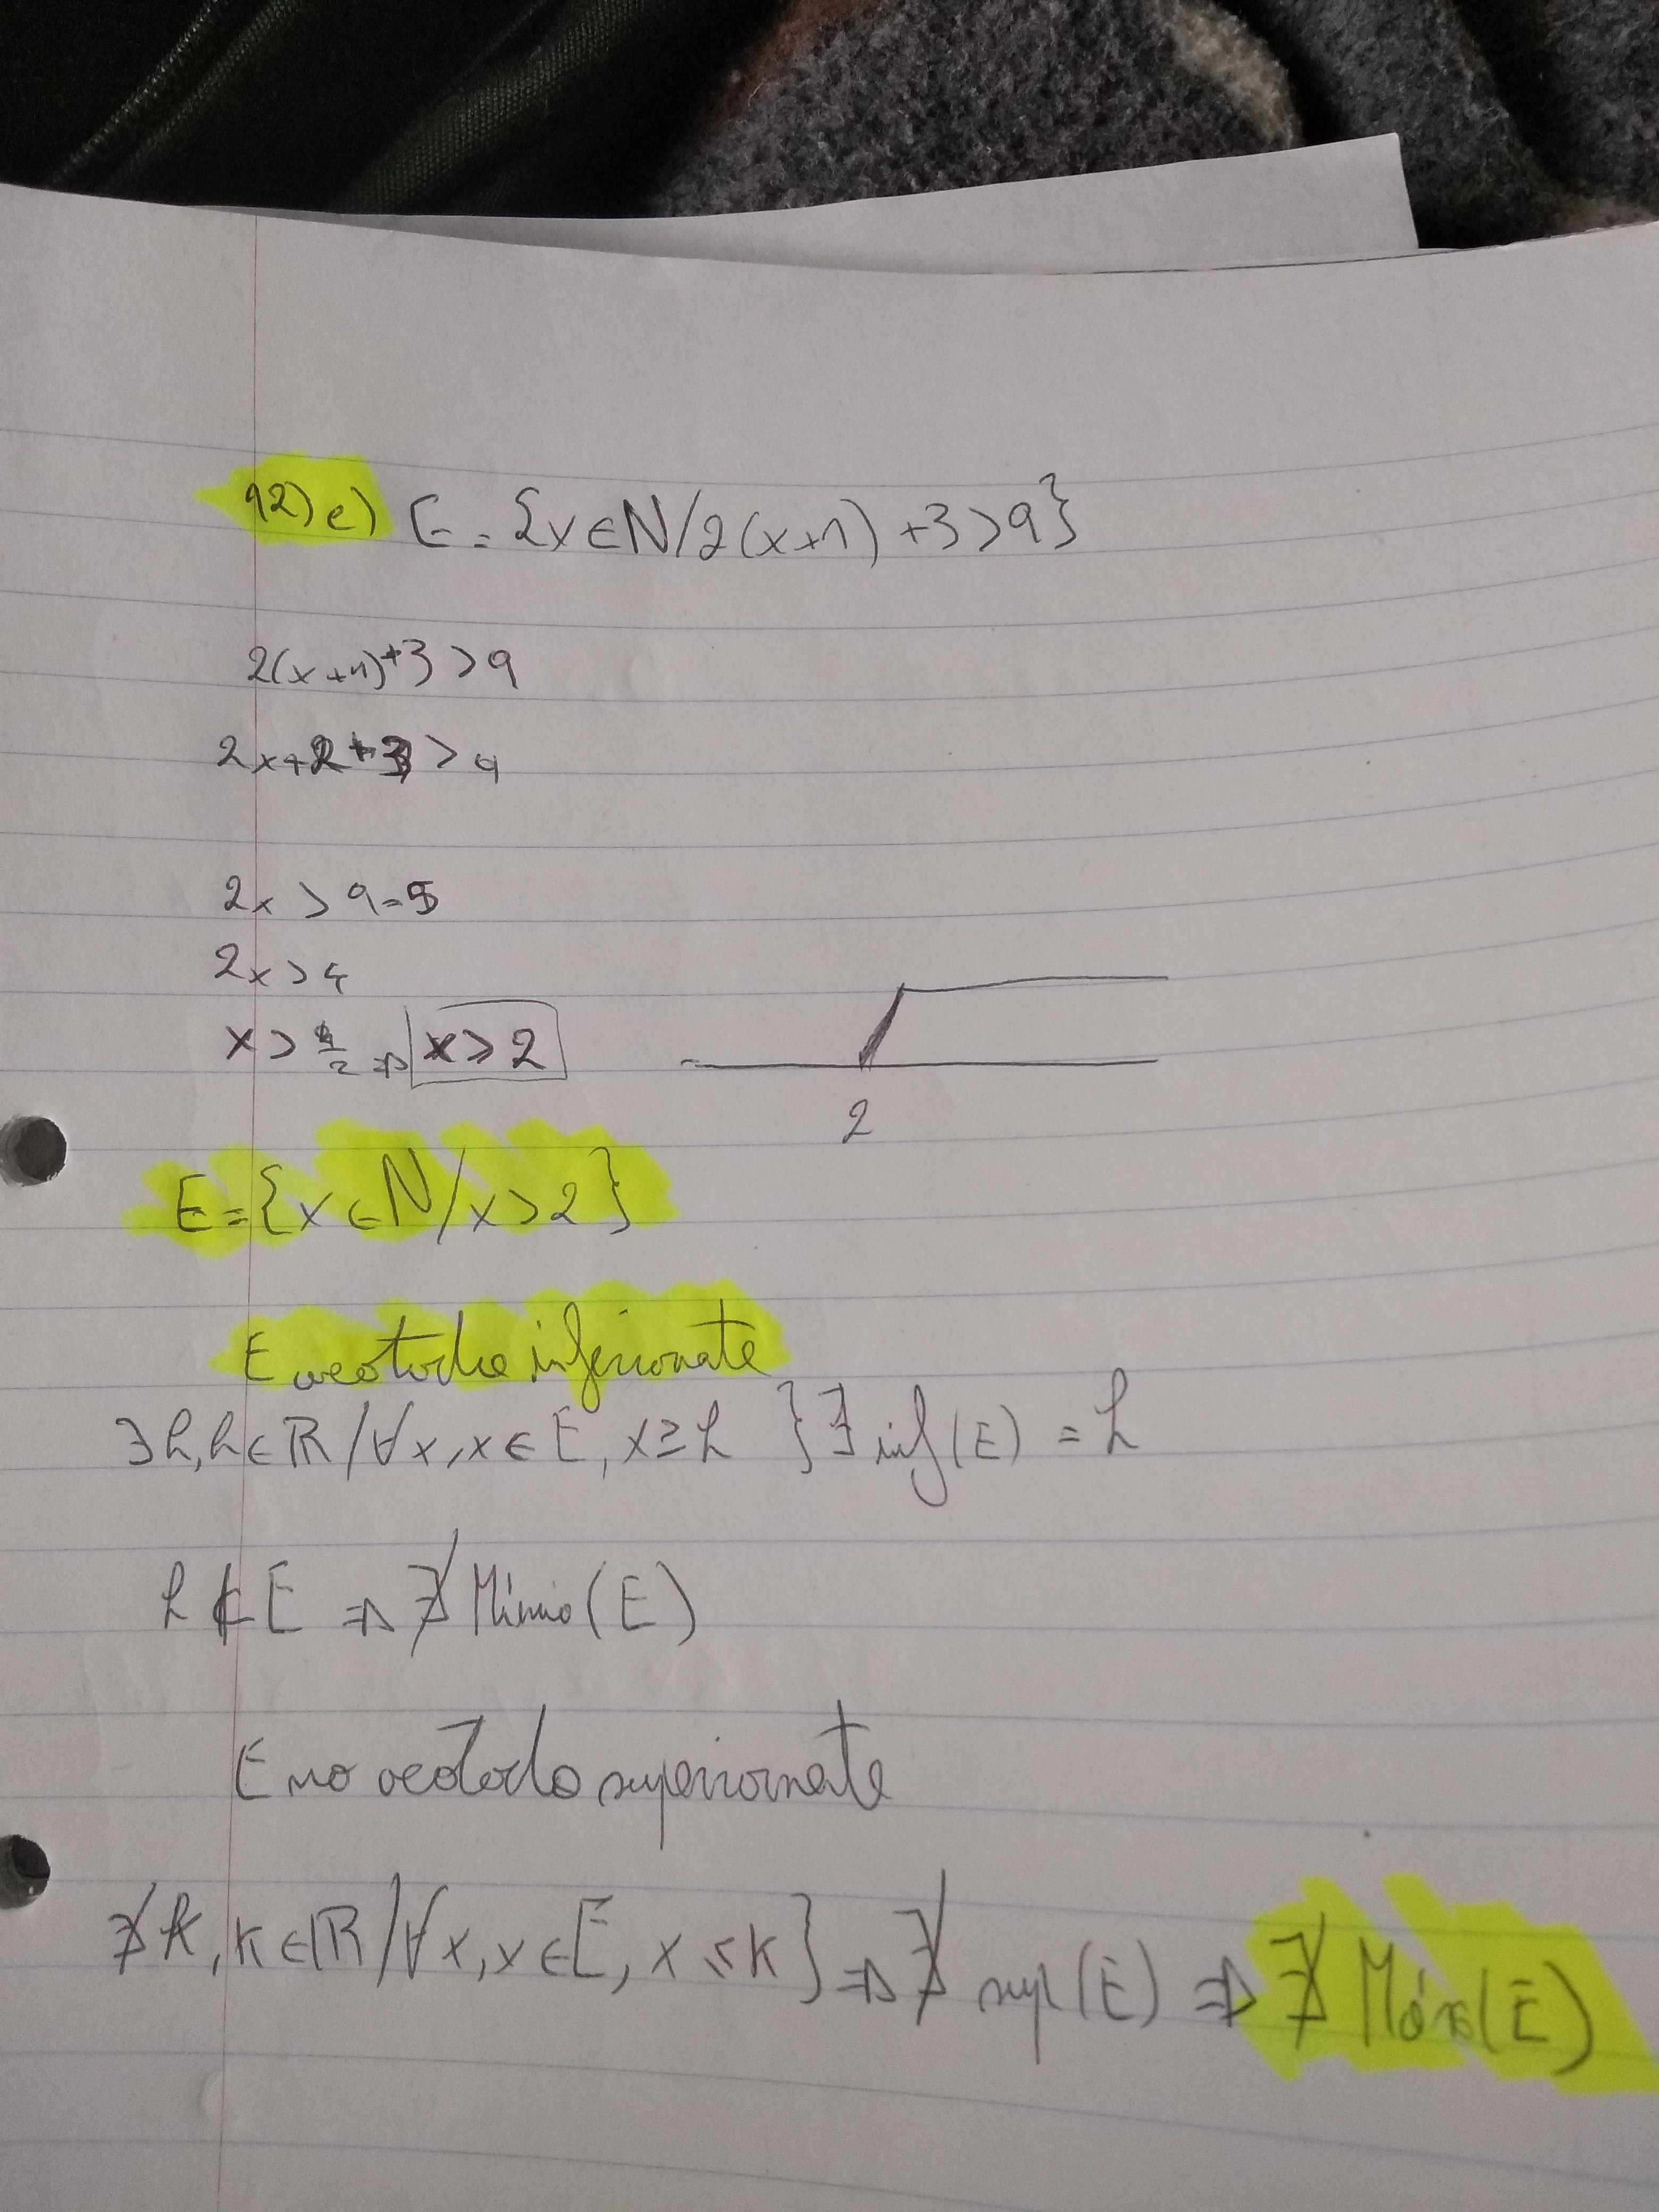 12) e) E = {x∈N/2(x+1)+3>9}
2(x+1)+3>9
2x+2+3>9
2x>9-5
2x>4
x>4/2⇒x>2
2
E={x∈N/x>2}
E acotado inferiormente
∃h,h∈R/∀x,x∈E, x≥h }∃inf(E)=h
h∉E⇒∄Mínimo(E)
E no acotado superiormente
∄k,k∈R/∀x,x∈E, x≤k}⇒∄sup(E)⇒∄Máx(E)